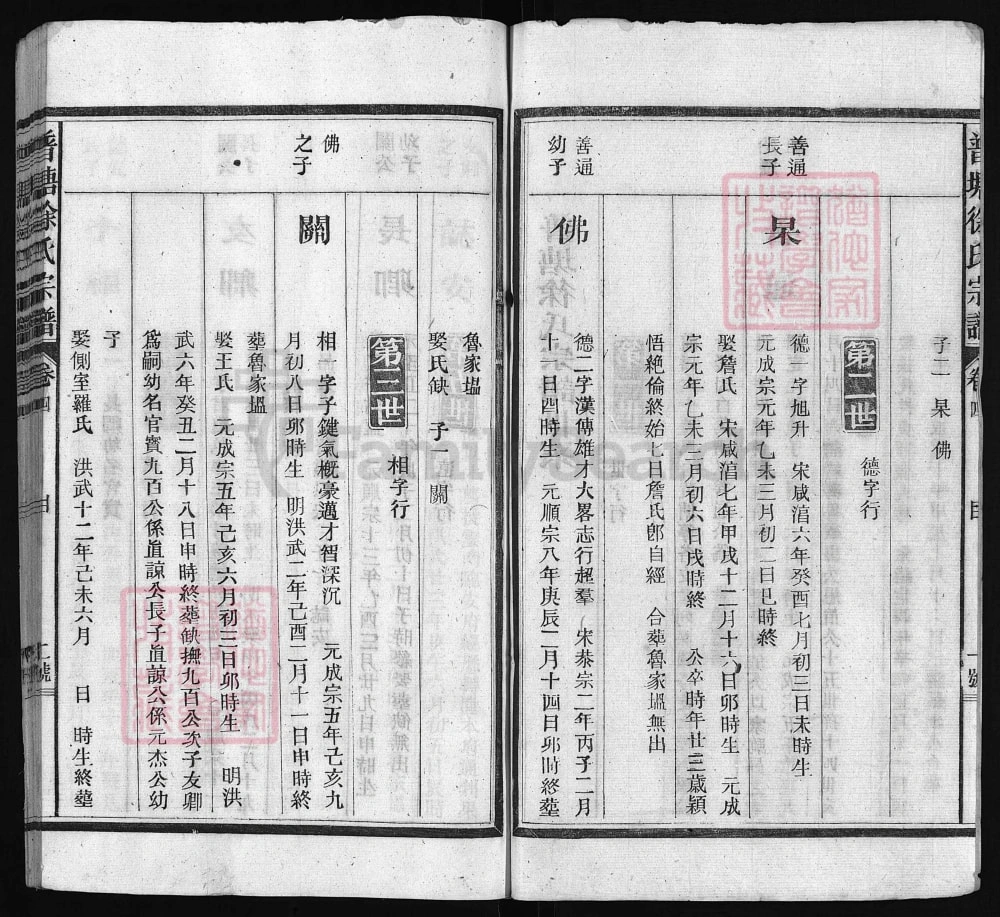 普塘徐氏宗譜
卷四
一號
子二 杲 佛
第二世
德字行
善通
長子
杲
德一字旭升 宋咸淯六年癸酉七月初三日未時生
元成宗元年乙未三月初二日巳時終
娶詹氏 宋咸淯七年甲戌十二月十六日卯時生 元成
宗元年乙未三月初六日戌時終 公卒時年廿三歲穎
悟絶倫終始七日詹氏卽自經 合葬魯家塭無出
善通
幼子
佛
德二字漢傅雄才大畧志行超羣 宋恭宗二年丙子二月
十六日四時生 元順宗八年庚辰二月十四日卯時終葬
魯家塭
娶氏缺 子一關
第三世
相字行
佛
之子
關
相一字子鍵氣概豪邁才智深沉 元成宗五年己亥九
月初八日卯時生 明洪武二年己酉二月十一日申時終
葬魯家塭
娶王氏 元成宗五年己亥六月初三日卯時生 明洪
武六年癸丑二月十八日申時終葬缺撫九百公次子友卿
爲嗣幼名官寶九百公係眞諒公長子眞諒公係元杰公幼
子
娶側室羅氏 洪武十二年己未六月 日 時生終葬
普塘徐氏宗譜
卷四